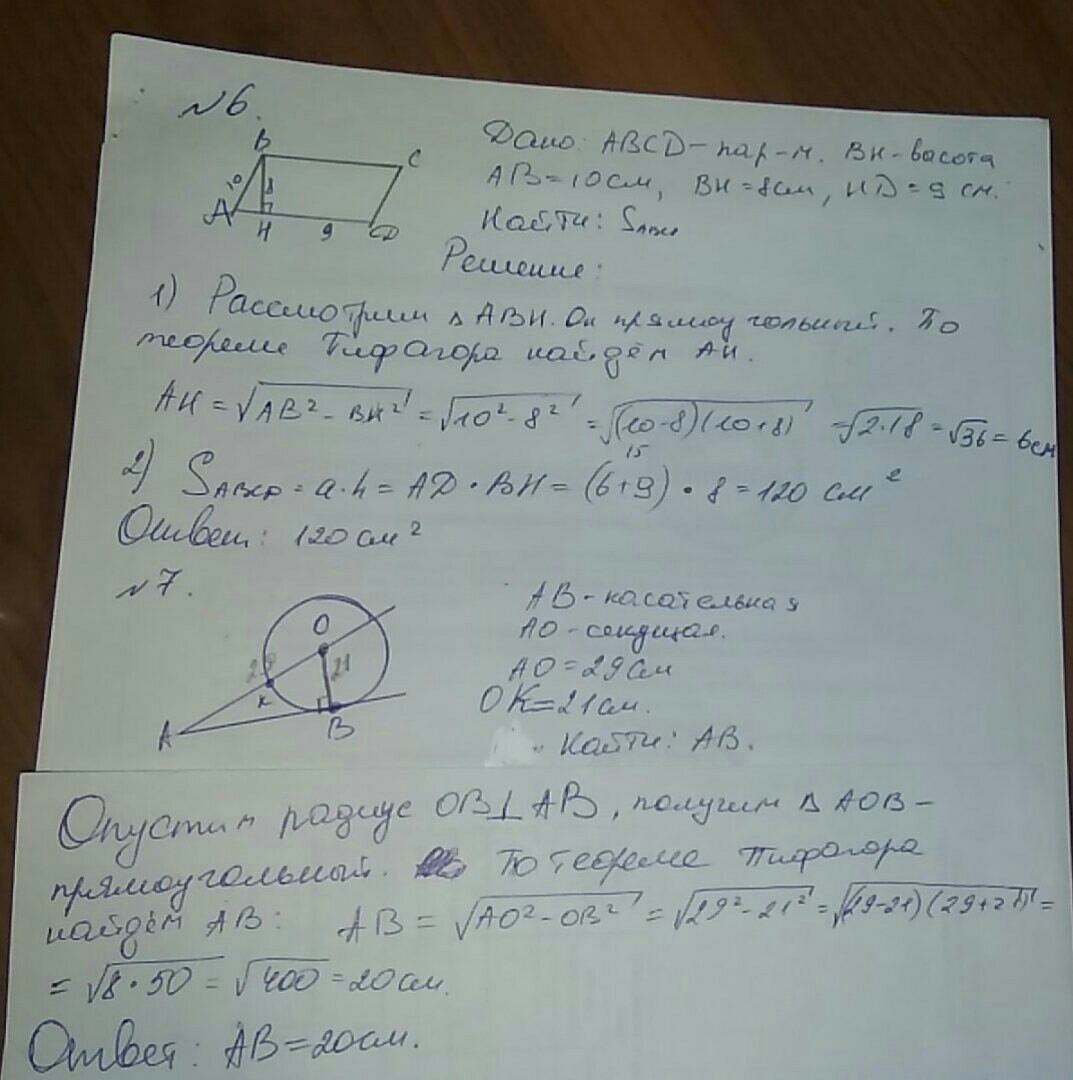 №6.
B
C
10
8
A
H
9
D
Дано: ABCD – пар-м. BH – высота
AB = 10 см, BH = 8 см, HD = 9 см.
Найти: S_ABCD
Решение:
1) Рассмотрим Δ ABH. Он прямоугольный. По
теореме Пифагора найдём AH.
AH = √(AB² – BH²) = √(10² – 8²) = √((10-8)(10+8)) = √(2·18) = √36 = 6 см
15
2) S_ABCD = a·h = AD · BH = (6+9) · 8 = 120 см²
Ответ: 120 см²
№7.
O
29
21
K
A
B
AB – касательная
AO – секущая.
AO = 29 см
OK = 21 см.
Найти: AB.
Опустим радиус OB⊥AB, получим Δ AOB –
прямоугольный. По теореме Пифагора
найдём AB: AB = √(AO² – OB²) = √(29² – 21²) = √((29-21)(29+21)) =
= √(8·50) = √400 = 20 см.
Ответ: AB = 20 см.